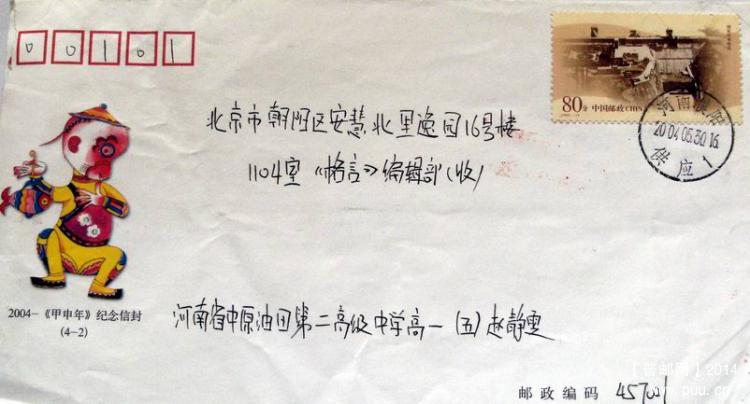 00101
80分 中国邮政CHINA
2004.06.30.16
供应 1
北京市朝阳区安慧北里逸园16号楼
1104室《格言》编辑部(收)
2004-《甲申年》纪念信封
(4-2)
河南省中原油田第二高级中学高一(五)赵静雯
邮政编码 457001
【普邮网】2014
www.puu.cn